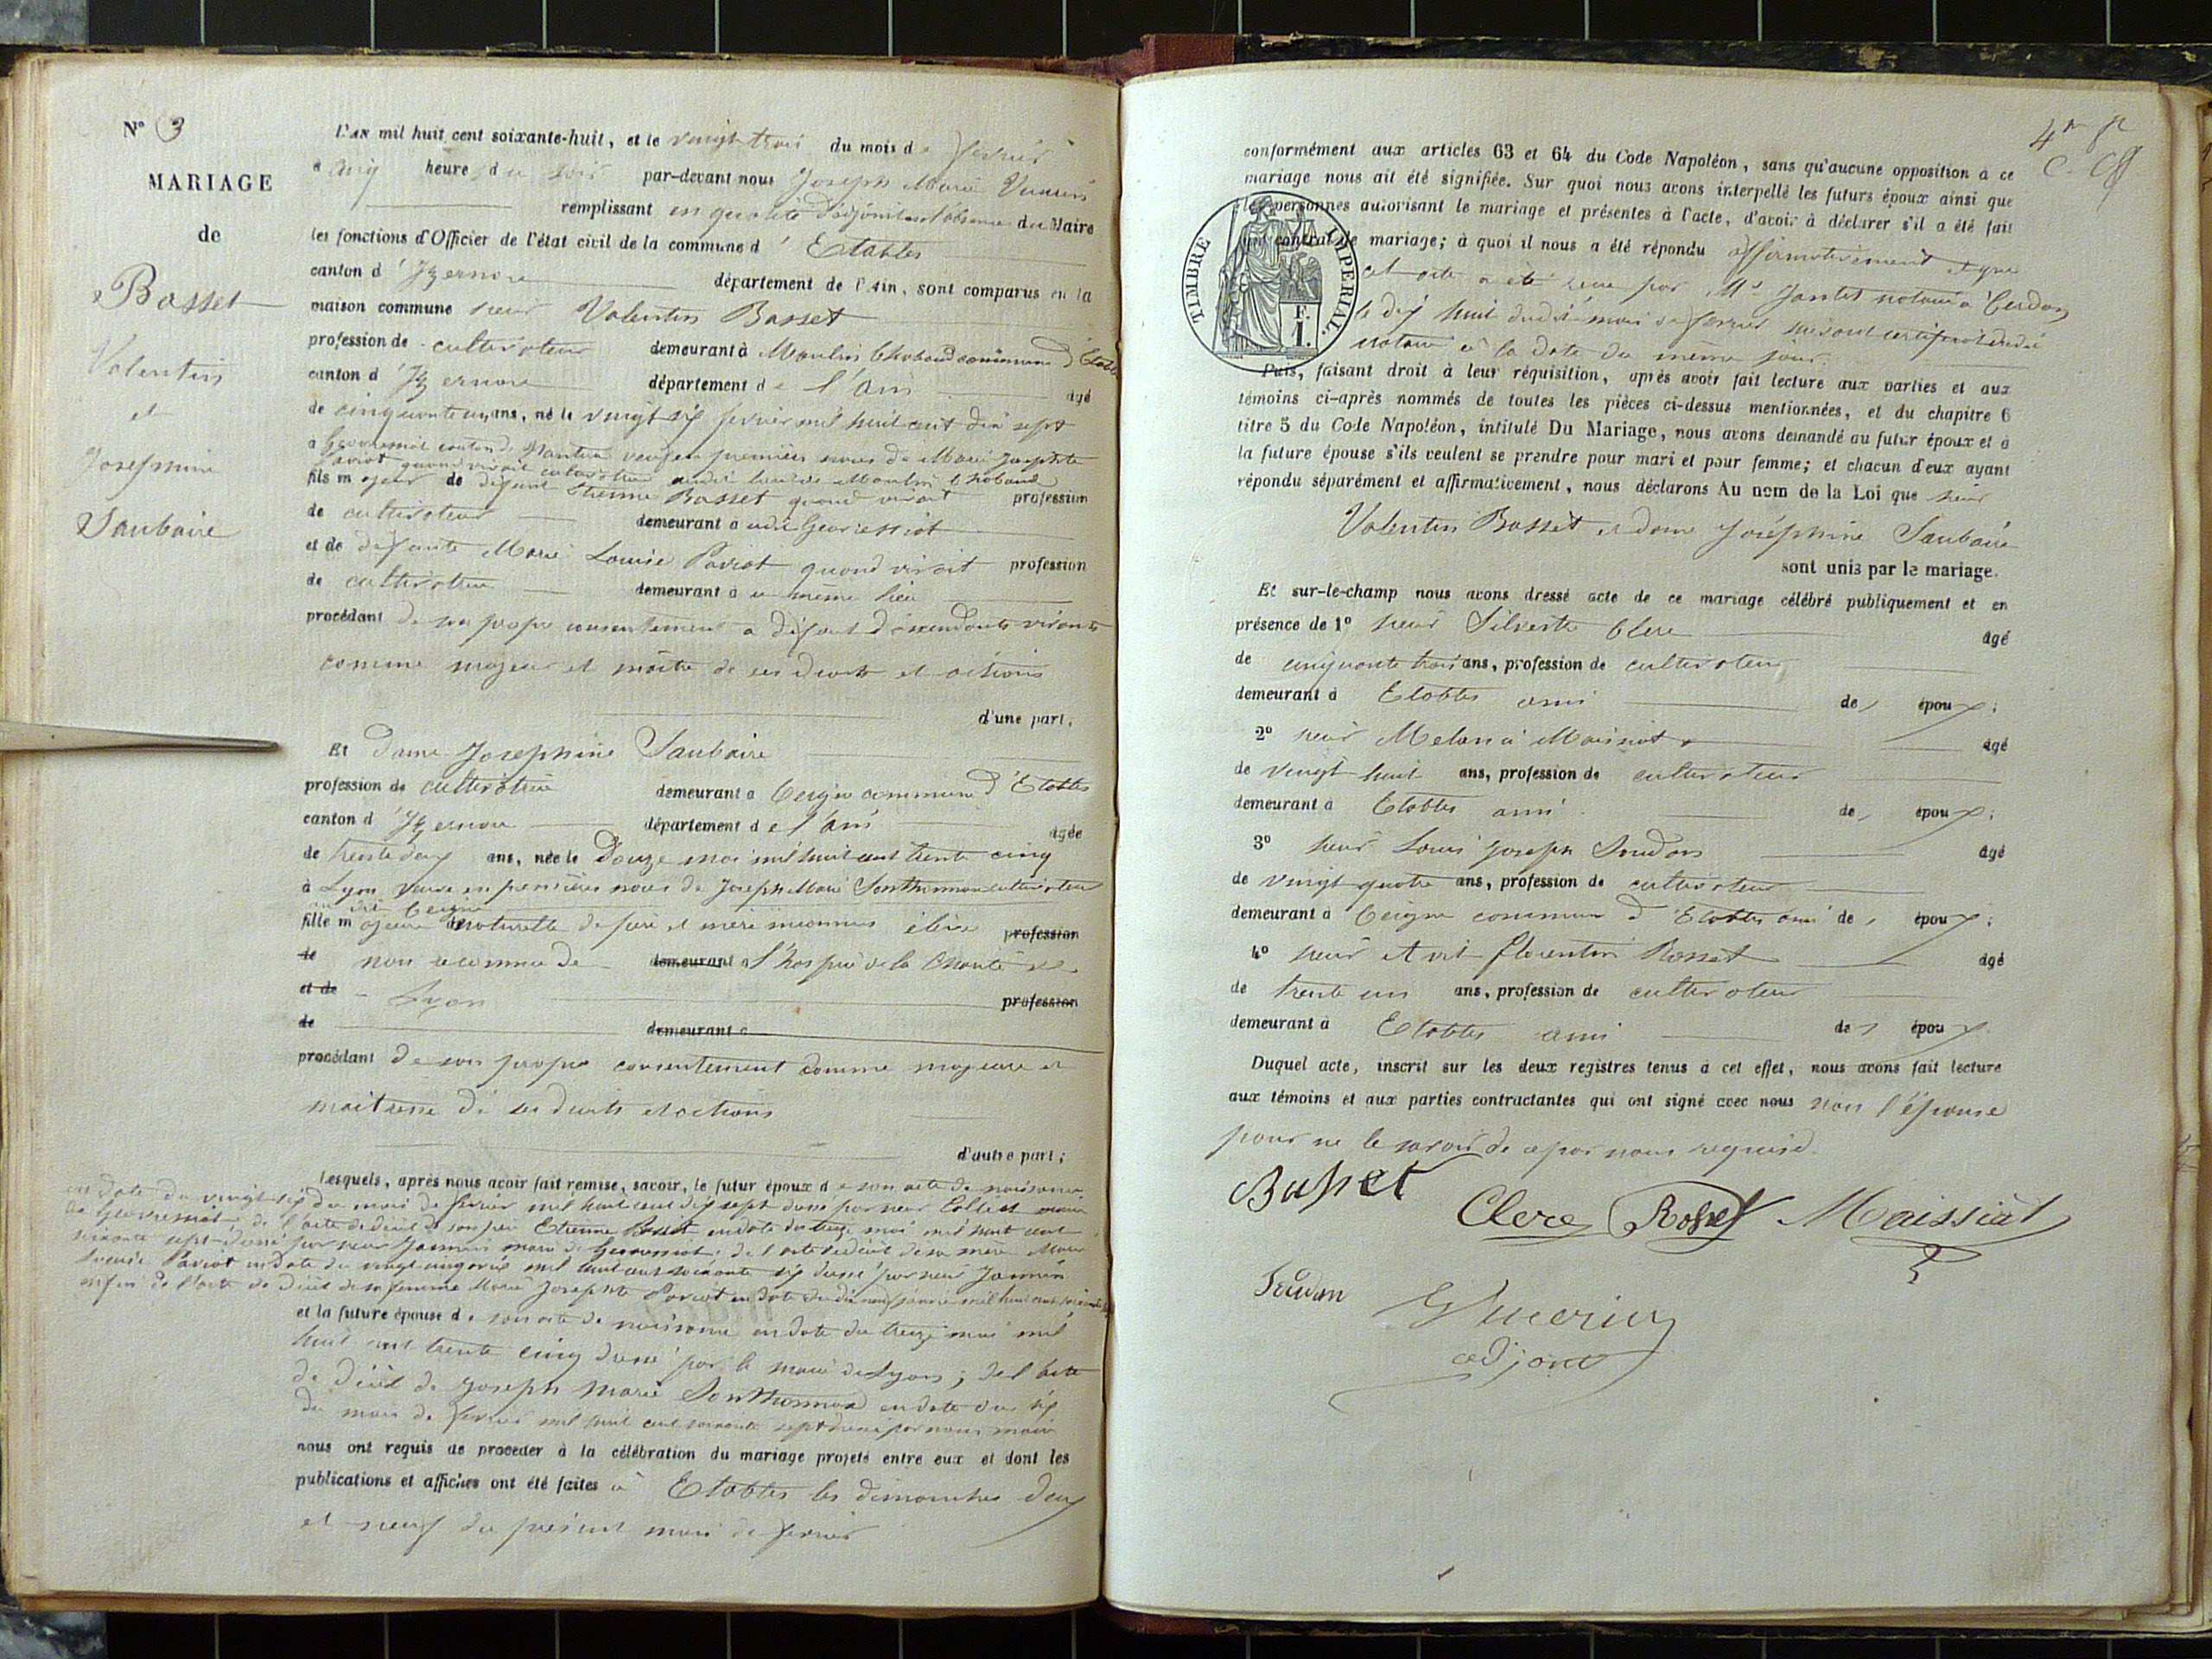 N° 3
MARIAGE
de
Basset
Valentin
et
Joséphine
Saubaire
L'AN mil huit cent soixante-huit, et le vingt trois du mois de février
a cinq heures du soir par-devant nous Joseph Marie Vuarin
remplissant en qualité d'adjoint en l'absence du Maire
les fonctions d'Officier de l'état civil de la commune d'Etables
canton d'Izernore département de l'Ain, sont comparus en la
maison commune sieur Valentin Basset
profession de cultivateur demeurant à Moulin Chabaud commune d'Etables
canton d'Izernore département de l'Ain âgé
de cinquante un ans, né le vingt six février mil huit cent dix sept
a canton de Nantua veuf en premières noces de Marie Josephte
Paviot quand vivait cultivatrice audit lieu de Moulin Chabaud
fils majeur de défunt Etienne Basset quand vivait profession
de cultivateur demeurant a udit
et de défunte Marie Louise Paviot quand vivait profession
de cultivatrice demeurant à u même lieu
procédant de son propre consentement a défaut d'ascendants vivants
comme majeur et maître de ses droits et actions
d'une part;
Et Dame Joséphine Saubaire
profession de cultivatrice demeurant a Ceigne commune d'Etables
canton d'Izernore département de l'Ain agée
de trente deux ans, née le Douze mai mil huit cent trente cinq
à Lyon veuve en premières noces de Joseph Marie Sonthonnax cultivateur
au dit Ceigne
fille majeure naturelle de père et mère inconnus élève profession
de non reconnue de demeurant a l'hospice de la Charité de
et de Lyon profession
de demeurant a
procédant de son propre consentement comme majeure et
maitresse de ses droits et actions
d'autre part;
Lesquels, après nous avoir fait remise, savoir, le futur époux de son acte de naissance
en date du vingt six du mois de février mil huit cent dix sept dressé par sieur Collet maire
de de l'acte de décès de son père Etienne Basset en date du treize mai mil huit cent
soixante sept dressé par sieur Jannin maire de de l'acte de décès de sa mère Marie
Louise Paviot en date du vingt cinq avril mil huit cent soixante six dressé par sieur Jannin
enfin de l'acte de décès de sa femme Marie Josephte Paviot en date du dix neuf janvier mil huit cent
et la future épouse de son acte de naissance en date du treize mai mil
huit cent trente cinq dressé par le maire de Lyon; de l'acte
de décès de Joseph Marie Sonthonnax en date du six
du mois de février mil huit cent soixante sept dressé par nous maire
nous ont requis de procéder à la célébration du mariage projeté entre eux et dont les
publications et affiches ont été faites à Etables les dimanches deux
et neuf du présent mois de février
conformément aux articles 63 et 64 du Code Napoléon, sans qu'aucune opposition à ce
mariage nous ait été signifiée. Sur quoi nous avons interpellé les futurs époux ainsi que
les personnes autorisant le mariage et présentes à l'acte, d'avoir à déclarer s'il a été fait
un contrat de mariage; à quoi il nous a été répondu affirmativement et que
cet acte a été reçu par Me Jantet notaire à Cerdon
le dix huit dudit mois de février suivant certificat dudit
notaire à la date du même jour.
TIMBRE IMPERIAL.
F.
1.
Puis, faisant droit à leur réquisition, après avoir fait lecture aux parties et aux
témoins ci-après nommés de toutes les pièces ci-dessus mentionnées, et du chapitre 6
titre 5 du Code Napoléon, intitulé Du Mariage, nous avons demandé au futur époux et à
la future épouse s'ils veulent se prendre pour mari et pour femme; et chacun d'eux ayant
répondu séparément et affirmativement, nous déclarons Au nom de la Loi que sieur
Valentin Basset et dame Joséphine Saubaire
sont unis par le mariage.
Et sur-le-champ nous avons dressé acte de ce mariage célébré publiquement et en
présence de 1° sieur Silvestre Clerc âgé
de cinquante trois ans, profession de cultivateur
demeurant à Etables ami de s époux;
2° sieur Melani Maissiat âgé
de vingt huit ans, profession de cultivateur
demeurant à Etables ami de s époux;
3° sieur Louis Joseph Soudon âgé
de vingt quatre ans, profession de cultivateur
demeurant à Ceigne commune d'Etables ami de s époux;
4° sieur Avit Florentin Rosset âgé
de trente un ans, profession de cultivateur
demeurant à Etables ami de s époux
Duquel acte, inscrit sur les deux registres tenus à cet effet, nous avons fait lecture
aux témoins et aux parties contractantes qui ont signé avec nous non l'épouse
pour ne le savoir de ce par nous requise.
Basset
Clerc Rosset Maissiat
Soudon
Vuarin
adjoint